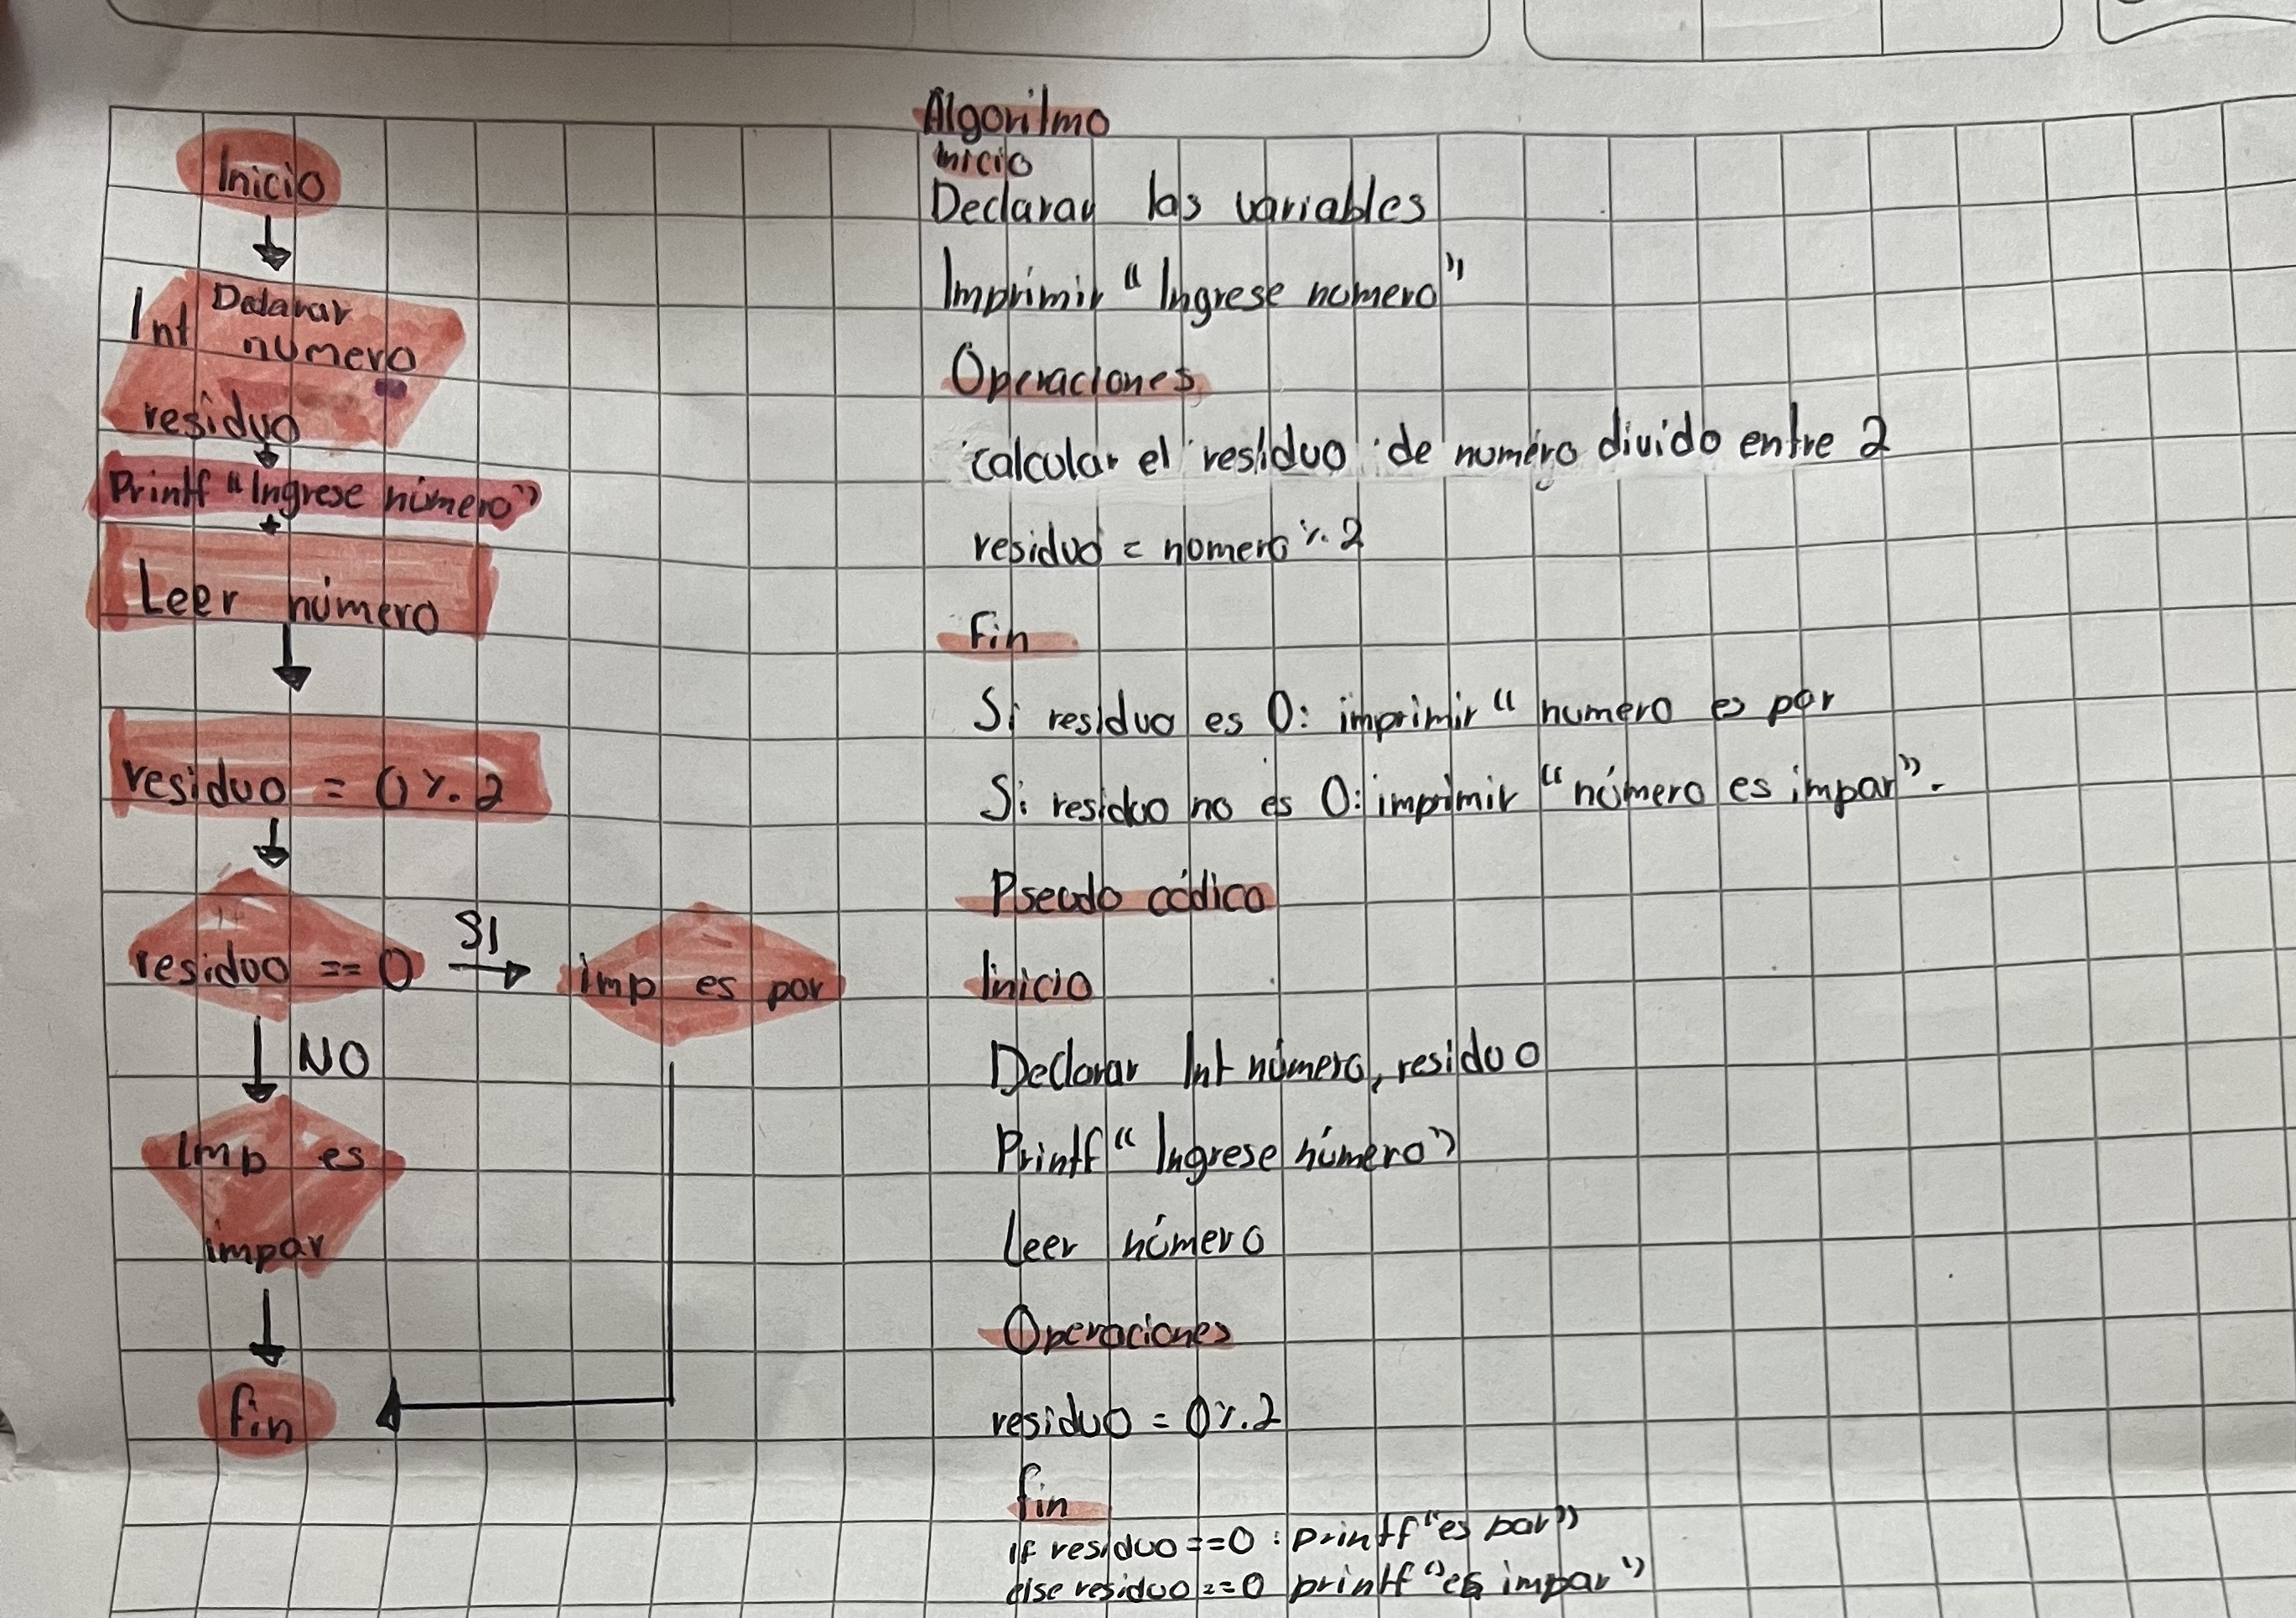 Inicio
Declarar
Int numero
residuo
Printf "Ingrese número"
Leer número
residuo = 0 % 2
residuo == 0
SI
imp es par
NO
Imp es
impar
fin
Algoritmo
Inicio
Declarar las variables
Imprimir "Ingrese numero"
Operaciones
calcular el residuo de numero divido entre 2
residuo = numero % 2
Fin
Si residuo es 0: imprimir " numero es par
Si residuo no es 0: imprimir "número es impar".
Pseudo códico
Inicio
Declarar Int número, residuo
Printf "Ingrese número"
Leer número
Operaciones
residuo = 0 % 2
fin
if residuo ==0 : printf "es par"
else residuo ==0 printf "es impar"